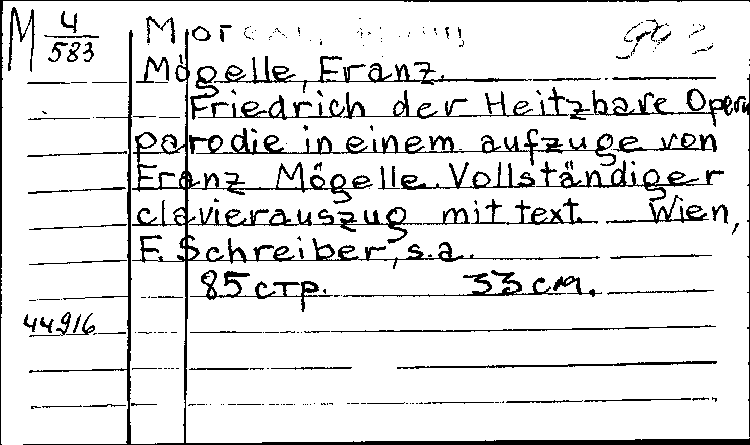 M 4/583
Mögelle, Franz.
Friedrich der Heitzbare Opern
parodie in einem aufzuge von
Franz Mögelle. Vollständiger
clavierauszug mit text. Wien,
F. Schreiber, s.a.
85 стр. 33 см.
44916